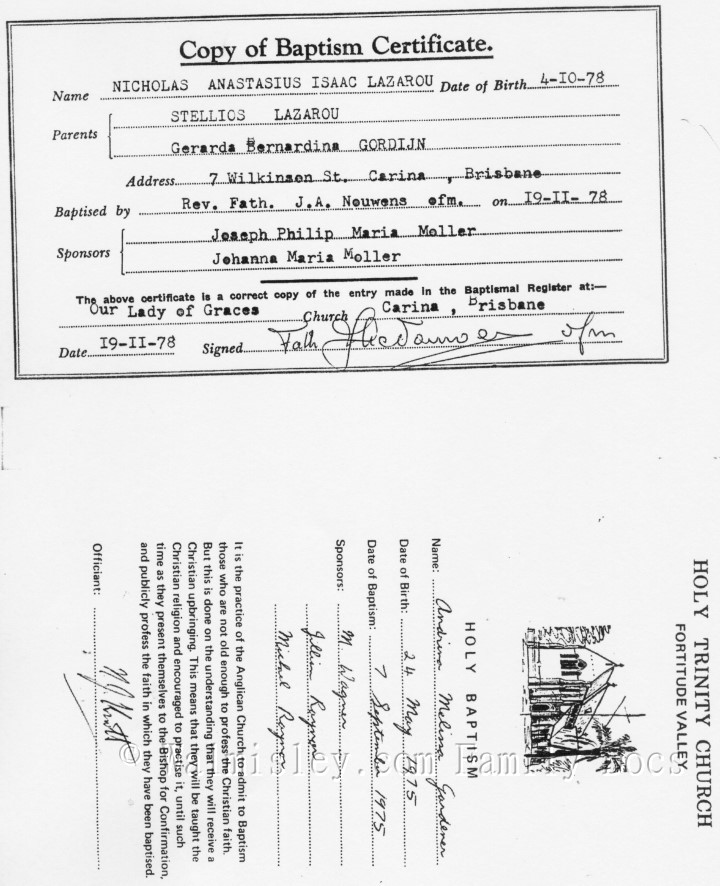 Copy of Baptism Certificate.
Name NICHOLAS ANASTASIUS ISAAC LAZAROU Date of Birth 4-IO-78
Parents STELLIOS LAZAROU
Gerarda Bernardina GORDIJN
Address 7 Wilkinson St. Carina , Brisbane
Baptised by Rev. Fath. J.A. Nouwens ofm. on I9-II- 78
Sponsors Joseph Philip Maria Moller
Johanna Maria Moller
The above certificate is a correct copy of the entry made in the Baptismal Register at:—
Our Lady of Graces Church Carina , Brisbane
Date I9-II-78 Signed Fath ofm
HOLY TRINITY CHURCH
FORTITUDE VALLEY
HOLY BAPTISM
Name: Andrew Melissa Gardener
Date of Birth: 24 May 1975
Date of Baptism: 7 September 1975
Sponsors: M. Wagner
Jillian Raynor
Michael Raynor
It is the practice of the Anglican Church, to admit to Baptism
those who are not old enough to profess the Christian faith.
But this is done on the understanding that they will receive a
Christian upbringing. This means that they will be taught the
Christian religion and encouraged to practise it, until such
time as they present themselves to the Bishop for Confirmation,
and publicly profess the faith in which they have been baptised.
Officiant: